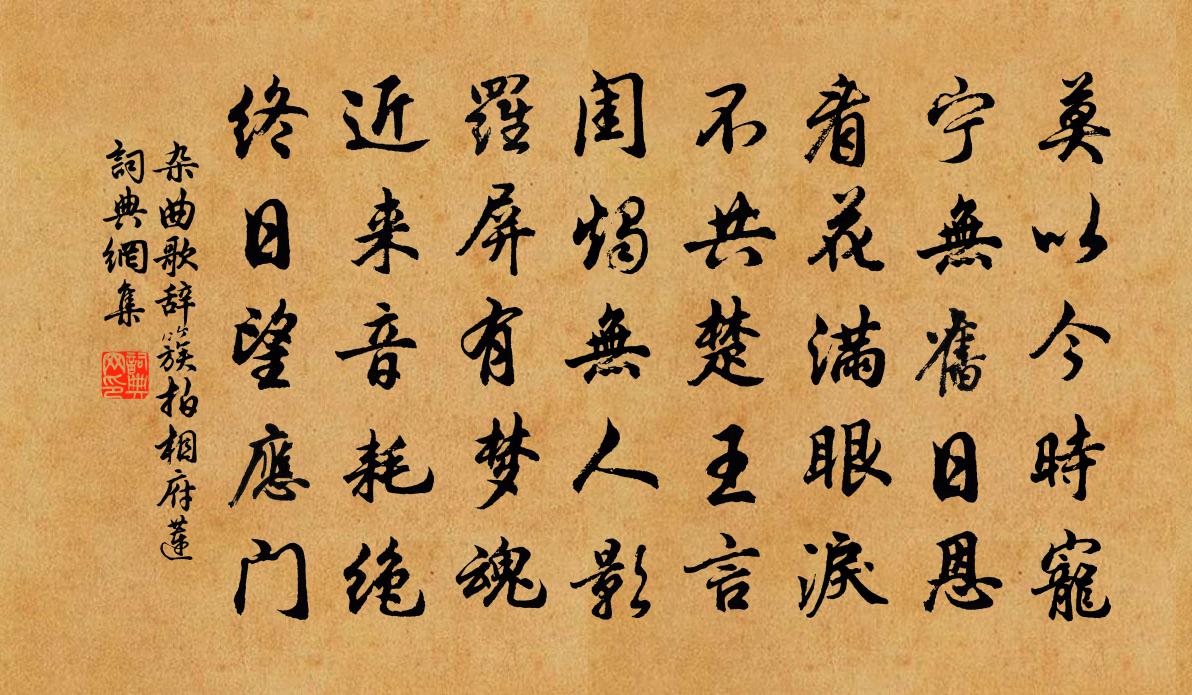 莫以今時寵
宁無舊日恩
看花滿眼淚
不共楚王言
閨燭無人影
羅屏有梦魂
近来音耗绝
终日望應门
杂曲歌辞簇拍相府蓮
詞典網集
詞典網印